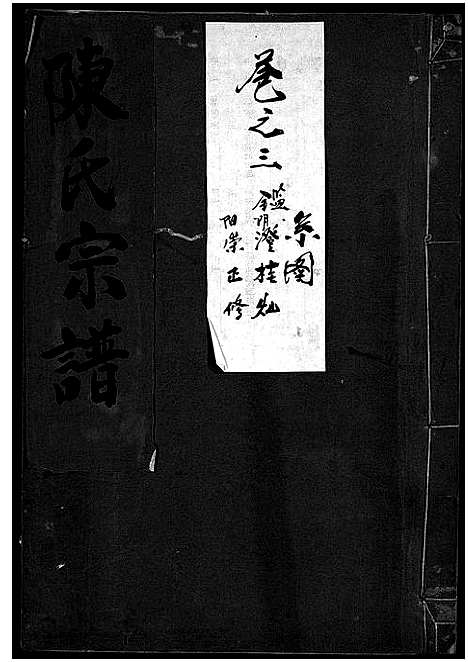 陳氏宗譜
卷之三
系图
鑑澄桂灿
阳崇正修